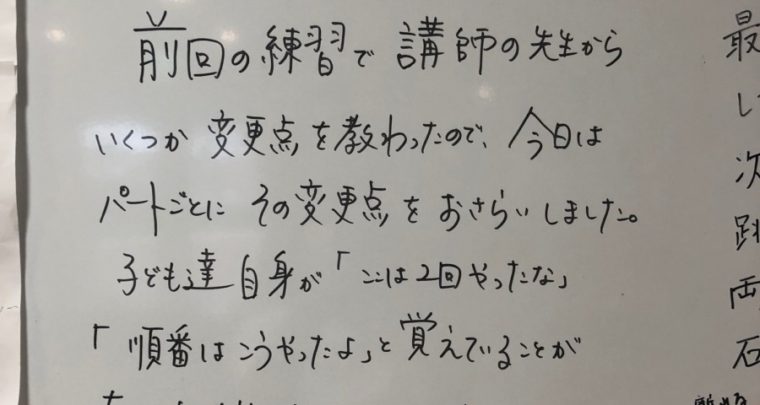 前回の練習で講師の先生から
いくつか変更点を教わったので、今日は
パートごとにその変更点をおさらいしました。
子ども達自身が「ここは2回やったな」
「順番はこうやったよ」と覚えていることが
最
し
次
跳
両
石